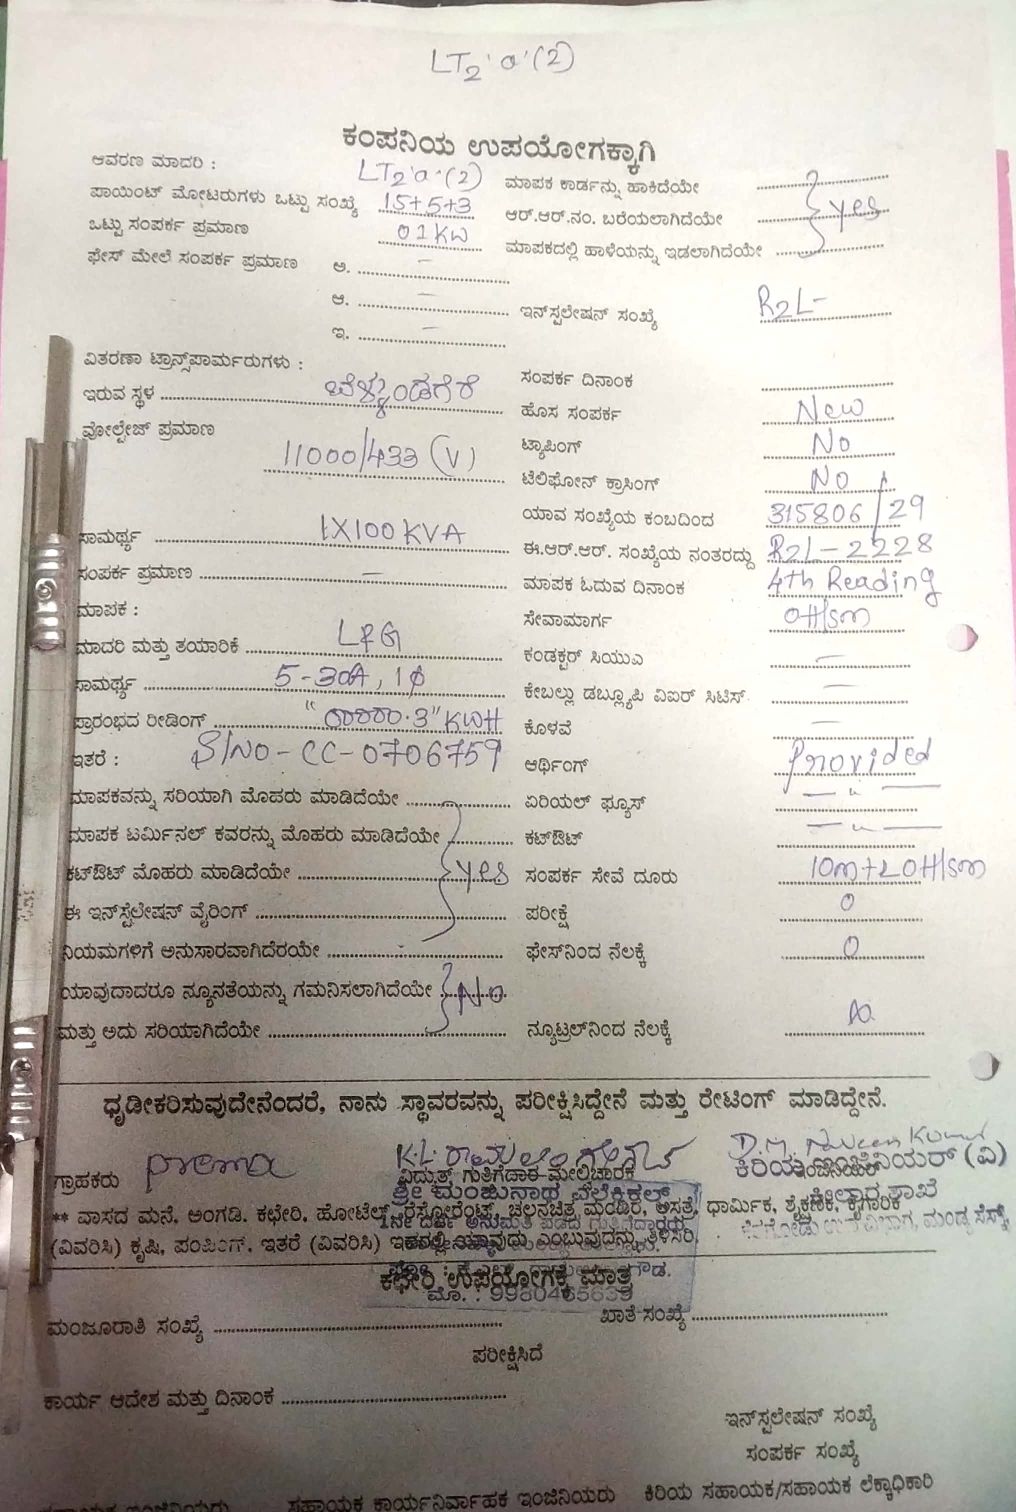 LT2 'a' (2)
ಕಂಪನಿಯ ಉಪಯೋಗಕ್ಕಾಗಿ
ಆವರಣ ಮಾದರಿ : LT2 'a' (2) ಮಾಪಕ ಕಾರ್ಡನ್ನು ಹಾಕಿದೆಯೇ
ಪಾಯಿಂಟ್ ಮೋಟರುಗಳು ಒಟ್ಟು ಸಂಖ್ಯೆ 15+5+3 ಆರ್.ಆರ್.ನಂ. ಬರೆಯಲಾಗಿದೆಯೇ yes
ಒಟ್ಟು ಸಂಪರ್ಕ ಪ್ರಮಾಣ 01KW ಮಾಪಕದಲ್ಲಿ ಹಾಳೆಯನ್ನು ಇಡಲಾಗಿದೆಯೇ
ಫೇಸ್ ಮೇಲೆ ಸಂಪರ್ಕ ಪ್ರಮಾಣ ಅ. –
ಆ. – ಇನ್‌ಸ್ಟಲೇಷನ್ ಸಂಖ್ಯೆ R2L-
ಇ. –
ವಿತರಣಾ ಟ್ರಾನ್ಸ್‌ಪಾರ್ಮರುಗಳು : ಸಂಪರ್ಕ ದಿನಾಂಕ
ಇರುವ ಸ್ಥಳ ಬೆಳ್ಳುಂಡಗೆರೆ ಹೊಸ ಸಂಪರ್ಕ New
ವೋಲ್ಟೇಜ್ ಪ್ರಮಾಣ 11000/433 (V) ಟ್ಯಾಪಿಂಗ್ No
ಟೆಲಿಫೋನ್ ಕ್ರಾಸಿಂಗ್ No
ಯಾವ ಸಂಖ್ಯೆಯ ಕಂಬದಿಂದ 315806/29
ಸಾಮರ್ಥ್ಯ 1X100KVA ಈ.ಆರ್.ಆರ್. ಸಂಖ್ಯೆಯ ನಂತರದ್ದು R2L-2228
ಸಂಪರ್ಕ ಪ್ರಮಾಣ – ಮಾಪಕ ಓದುವ ದಿನಾಂಕ 4th Reading
ಮಾಪಕ : ಸೇವಾಮಾರ್ಗ OH/sm
ಮಾದರಿ ಮತ್ತು ತಯಾರಿಕೆ L&G ಕಂಡಕ್ಟರ್ ಸಿಯುಎ –
ಸಾಮರ್ಥ್ಯ 5-30A, 1φ ಕೇಬಲ್ಲು ಡಬ್ಲ್ಯೂಪಿ ವಿಐರ್ ಸಿಟಿಸ್ –
ಪ್ರಾರಂಭದ ರೀಡಿಂಗ್ "00000.3" KWH ಕೊಳವೆ –
ಇತರೆ : S/NO-CC-0706759 ಆರ್ಥಿಂಗ್ Provided
ಮಾಪಕವನ್ನು ಸರಿಯಾಗಿ ಮೊಹರು ಮಾಡಿದೆಯೇ ಏರಿಯಲ್ ಫ್ಯೂಸ್ — " —
ಮಾಪಕ ಟರ್ಮಿನಲ್ ಕವರನ್ನು ಮೊಹರು ಮಾಡಿದೆಯೇ ಕಟ್‌ಔಟ್ — " —
ಕಟ್‌ಔಟ್ ಮೊಹರು ಮಾಡಿದೆಯೇ yes ಸಂಪರ್ಕ ಸೇವೆ ದೂರು 10m+LOH/sm
ಈ ಇನ್‌ಸ್ಟೆಲೇಷನ್ ವೈರಿಂಗ್ ಪರೀಕ್ಷೆ 0
ನಿಯಮಗಳಿಗೆ ಅನುಸಾರವಾಗಿದೆರಯೇ ಫೇಸ್‌ನಿಂದ ನೆಲಕ್ಕೆ 0
ಯಾವುದಾದರೂ ನ್ಯೂನತೆಯನ್ನು ಗಮನಿಸಲಾಗಿದೆಯೇ No
ಮತ್ತು ಅದು ಸರಿಯಾಗಿದೆಯೇ ನ್ಯೂಟ್ರಲ್‌ನಿಂದ ನೆಲಕ್ಕೆ
ಧೃಡೀಕರಿಸುವುದೇನೆಂದರೆ, ನಾನು ಸ್ಥಾವರವನ್ನು ಪರೀಕ್ಷಿಸಿದ್ದೇನೆ ಮತ್ತು ರೇಟಿಂಗ್ ಮಾಡಿದ್ದೇನೆ.
ಗ್ರಾಹಕರು prema ವಿದ್ಯುತ್ ಗುತ್ತಿಗೆದಾರ ಮೇಲ್ವಿಚಾರಕ D.M. Naveen Kumar ಕಿರಿಯ ಇಂಜಿನಿಯರ್ (ವಿ)
ಶ್ರೀ ಮಂಜುನಾಥ ಎಲೆಕ್ಟ್ರಿಕಲ್ಸ್ ಕೀಲಾರ ಶಾಖೆ
** ವಾಸದ ಮನೆ, ಅಂಗಡಿ. ಕಛೇರಿ, ಹೋಟೆಲ್, ರೆಸ್ಟೋರೆಂಟ್, ಚಲನಚಿತ್ರ ಮಂದಿರ, ಆಸತ್ರೆ, ಧಾರ್ಮಿಕ, ಶೈಕ್ಷಣಿಕ, ಕೈಗಾರಿಕೆ
(ವಿವರಿಸಿ) ಕೃಷಿ, ಪಂಪಿಂಗ್. ಇತರೆ (ವಿವರಿಸಿ) ಇದರಲ್ಲಿ ಯಾವುದು ಎಂಬುವುದನ್ನು ತಿಳಿಸಿರಿ.
ಕಛೇರಿ ಉಪಯೋಗಕ್ಕೆ ಮಾತ್ರ
ಮಂಜೂರಾತಿ ಸಂಖ್ಯೆ ಖಾತೆ ಸಂಖ್ಯೆ
ಪರೀಕ್ಷಿಸಿದೆ
ಕಾರ್ಯ ಆದೇಶ ಮತ್ತು ದಿನಾಂಕ
ಇನ್‌ಸ್ಟಲೇಷನ್ ಸಂಖ್ಯೆ
ಸಂಪರ್ಕ ಸಂಖ್ಯೆ
ಸಹಾಯಕ ಇಂಜಿನಿಯರು ಸಹಾಯಕ ಕಾರ್ಯನಿರ್ವಾಹಕ ಇಂಜಿನಿಯರು ಕಿರಿಯ ಸಹಾಯಕ/ಸಹಾಯಕ ಲೆಕ್ಕಾಧಿಕಾರಿ